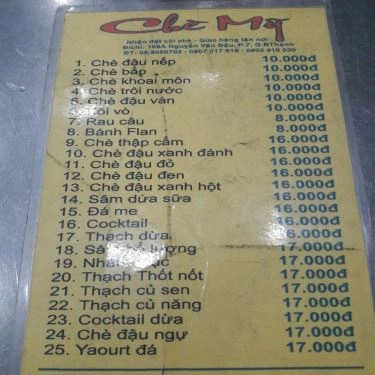 Chè Mỹ
Nhận đặt xôi chè - Giao hàng tận nơi
Đ/chỉ: 168A Nguyễn Văn Đậu, P.7, Q.BThạnh
ĐT: 08.8050703 - 0907 017 516 - 0903 910 030
1. Chè đậu nếp 10.000đ
2. Chè bắp 10.000đ
3. Chè khoai môn 10.000đ
4. Chè trôi nước 10.000đ
5. Chè đậu ván 10.000đ
6. Xôi vò 10.000đ
7. Rau câu 8.000đ
8. Bánh Flan 8.000đ
9. Chè thập cẩm 16.000đ
10. Chè đậu xanh đánh 16.000đ
11. Chè đậu đỏ 16.000đ
12. Chè đậu đen 16.000đ
13. Chè đậu xanh hột 16.000đ
14. Sâm dứa sữa 16.000đ
15. Đá me 16.000đ
16. Cocktail 16.000đ
17. Thạch dừa 17.000đ
18. Sâm bổ lượng 17.000đ
19. Nhãn nhục 17.000đ
20. Thạch Thốt nốt 17.000đ
21. Thạch củ sen 17.000đ
22. Thạch củ năng 17.000đ
23. Cocktail dừa 17.000đ
24. Chè đậu ngự 17.000đ
25. Yaourt đá 17.000đ